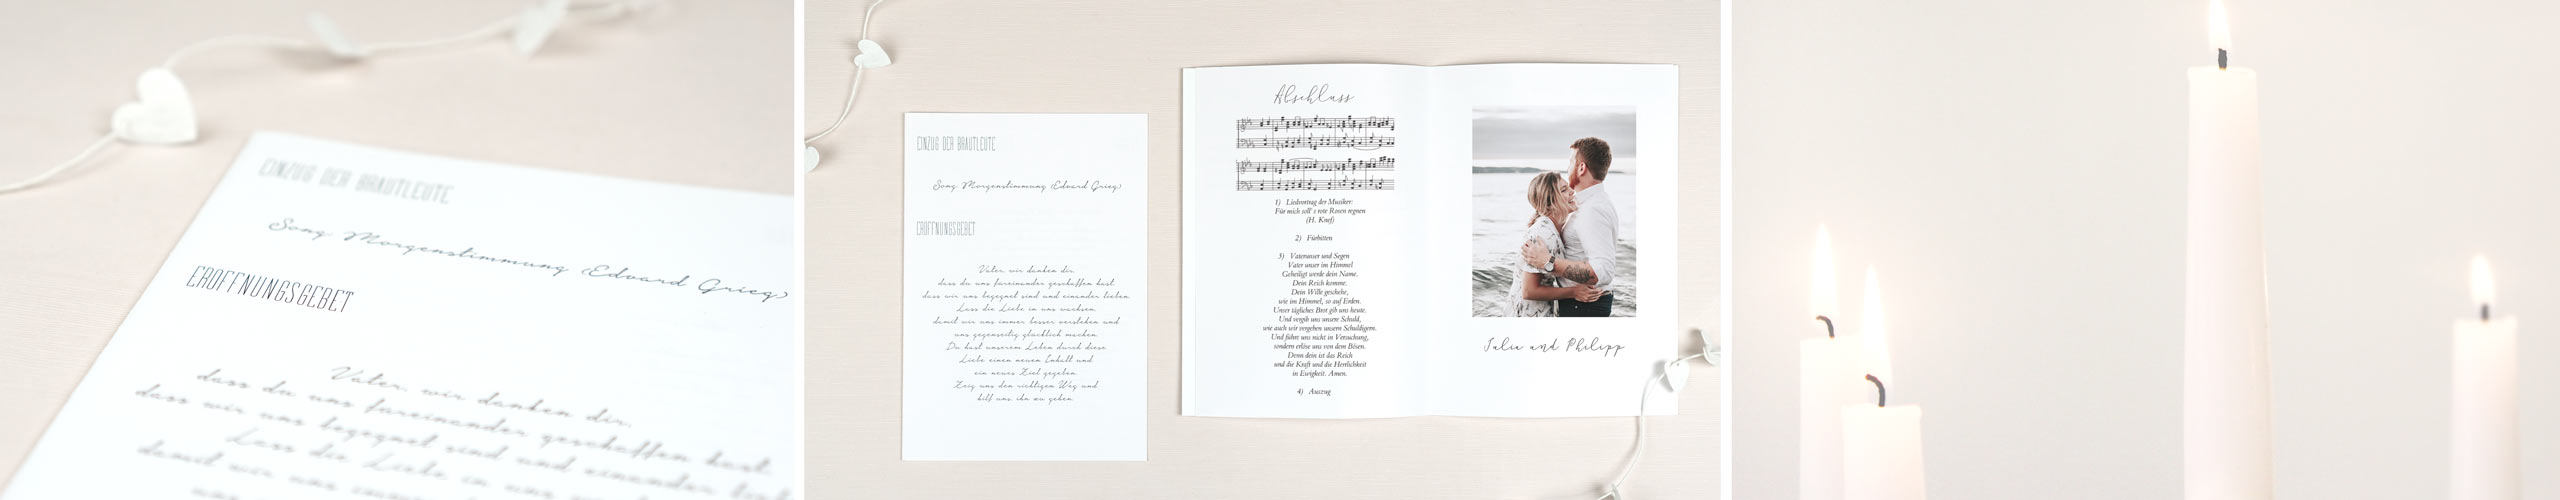 EINZUG DER BRAUTLEUTE
Song: Morgenstimmung (Edvard Grieg)
ERÖFFNUNGSGEBET
Vater, wir danken dir,
dass du uns füreinander geschaffen hast
dass wir uns begegnet sind und einander lieben
Lass die Liebe in uns
damit wir uns
EINZUG DER BRAUTLEUTE
Song: Morgenstimmung (Edvard Grieg)
ERÖFFNUNGSGEBET
Vater, wir danken dir,
dass du uns füreinander geschaffen hast,
dass wir uns begegnet sind und einander lieben.
Lass die Liebe in uns wachsen,
damit wir uns immer besser verstehen und
uns gegenseitig glücklich machen.
Du hast unserem Leben durch diese
Liebe einen neuen Inhalt und
ein neues Ziel gegeben.
Zeig uns den richtigen Weg und
hilf uns, ihn zu gehen.
Abschluss
1) Liedvortrag der Musiker:
Für mich soll's rote Rosen regnen
(H. Knef)
2) Fürbitten
3) Vaterunser und Segen
Vater unser im Himmel
Geheiligt werde dein Name.
Dein Reich komme.
Dein Wille geschehe,
wie im Himmel, so auf Erden.
Unser tägliches Brot gib uns heute.
Und vergib uns unsere Schuld,
wie auch wir vergeben unsern Schuldigern.
Und führe uns nicht in Versuchung,
sondern erlöse uns von dem Bösen.
Denn dein ist das Reich
und die Kraft und die Herrlichkeit
in Ewigkeit. Amen.
4) Auszug
Julia and Philipp